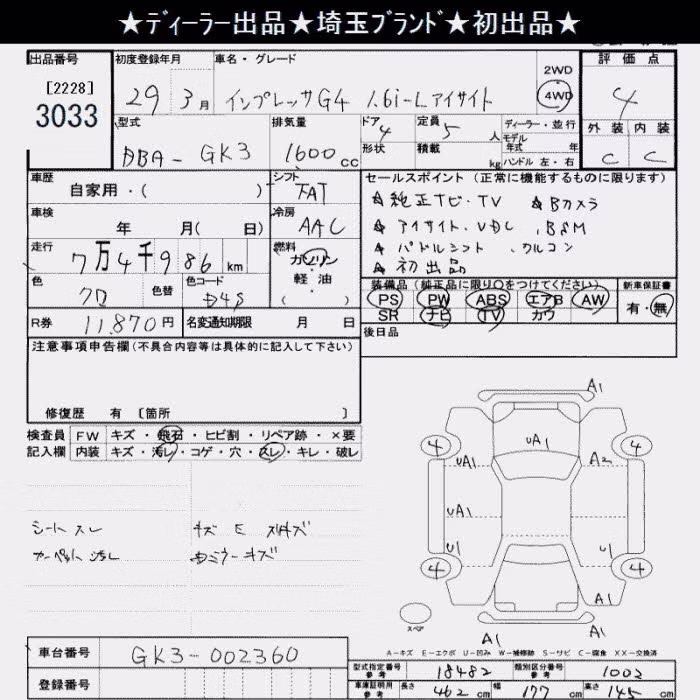 ★ディーラー出品★埼玉ブランド★初出品★
出品番号 初度登録年月 車名・グレード 2WD 4WD 評価点
[2228]
3033
29 3月 インプレッサG4 1.6i-Lアイサイト 4
型式 排気量 ドア 4 定員 5人 ディーラー・並行 外装 内装
DBA-GK3 1600cc 形状 積載 kg モデル年式 年 ハンドル 左・右 C C
車歴 自家用・( ) シフト FAT セールスポイント (正常に機能するものに限ります)
☆純正ナビ・TV ☆Bカメラ
車検 年 月( 日) 冷房 AAC ☆アイサイト・VDC BSM
走行 7万4千986km 燃料 ガソリン 軽・油 ( ) ☆パドルシフト クルコン
☆初出品
色 クロ 色替 色コード D4S
装備品(純正品に限り○をつけてください) 新車保証書
PS PW ABS エアB AW 有・無
SR ナビ TV カワ
R券 11,870円 名変通知期限 月 日 後日品
注意事項申告欄(不具合内容等は具体的に記入して下さい)
修復歴 有 [箇所 ]
検査員 FW キズ・飛石・ヒビ割・リペア跡・×要
記入欄 内装 キズ・汚レ・コゲ・穴・スレ・キレ・破レ
シートスレ キズ E スリキズ
カーペット汚レ
A1
4 UA1 4
UA1 A2
UA1
U1 U1
4 4
A1
スペア A1 A1
A-キズ E-エクボ U-凹み W-補修跡 S-サビ C-腐食 XX-交換済
車台番号 GK3-002360 型式指定番号 参考 18482 類別区分番号 参考 1002
登録番号 車庫証明用 参考 長さ 462cm 幅 177cm 高さ 145cm